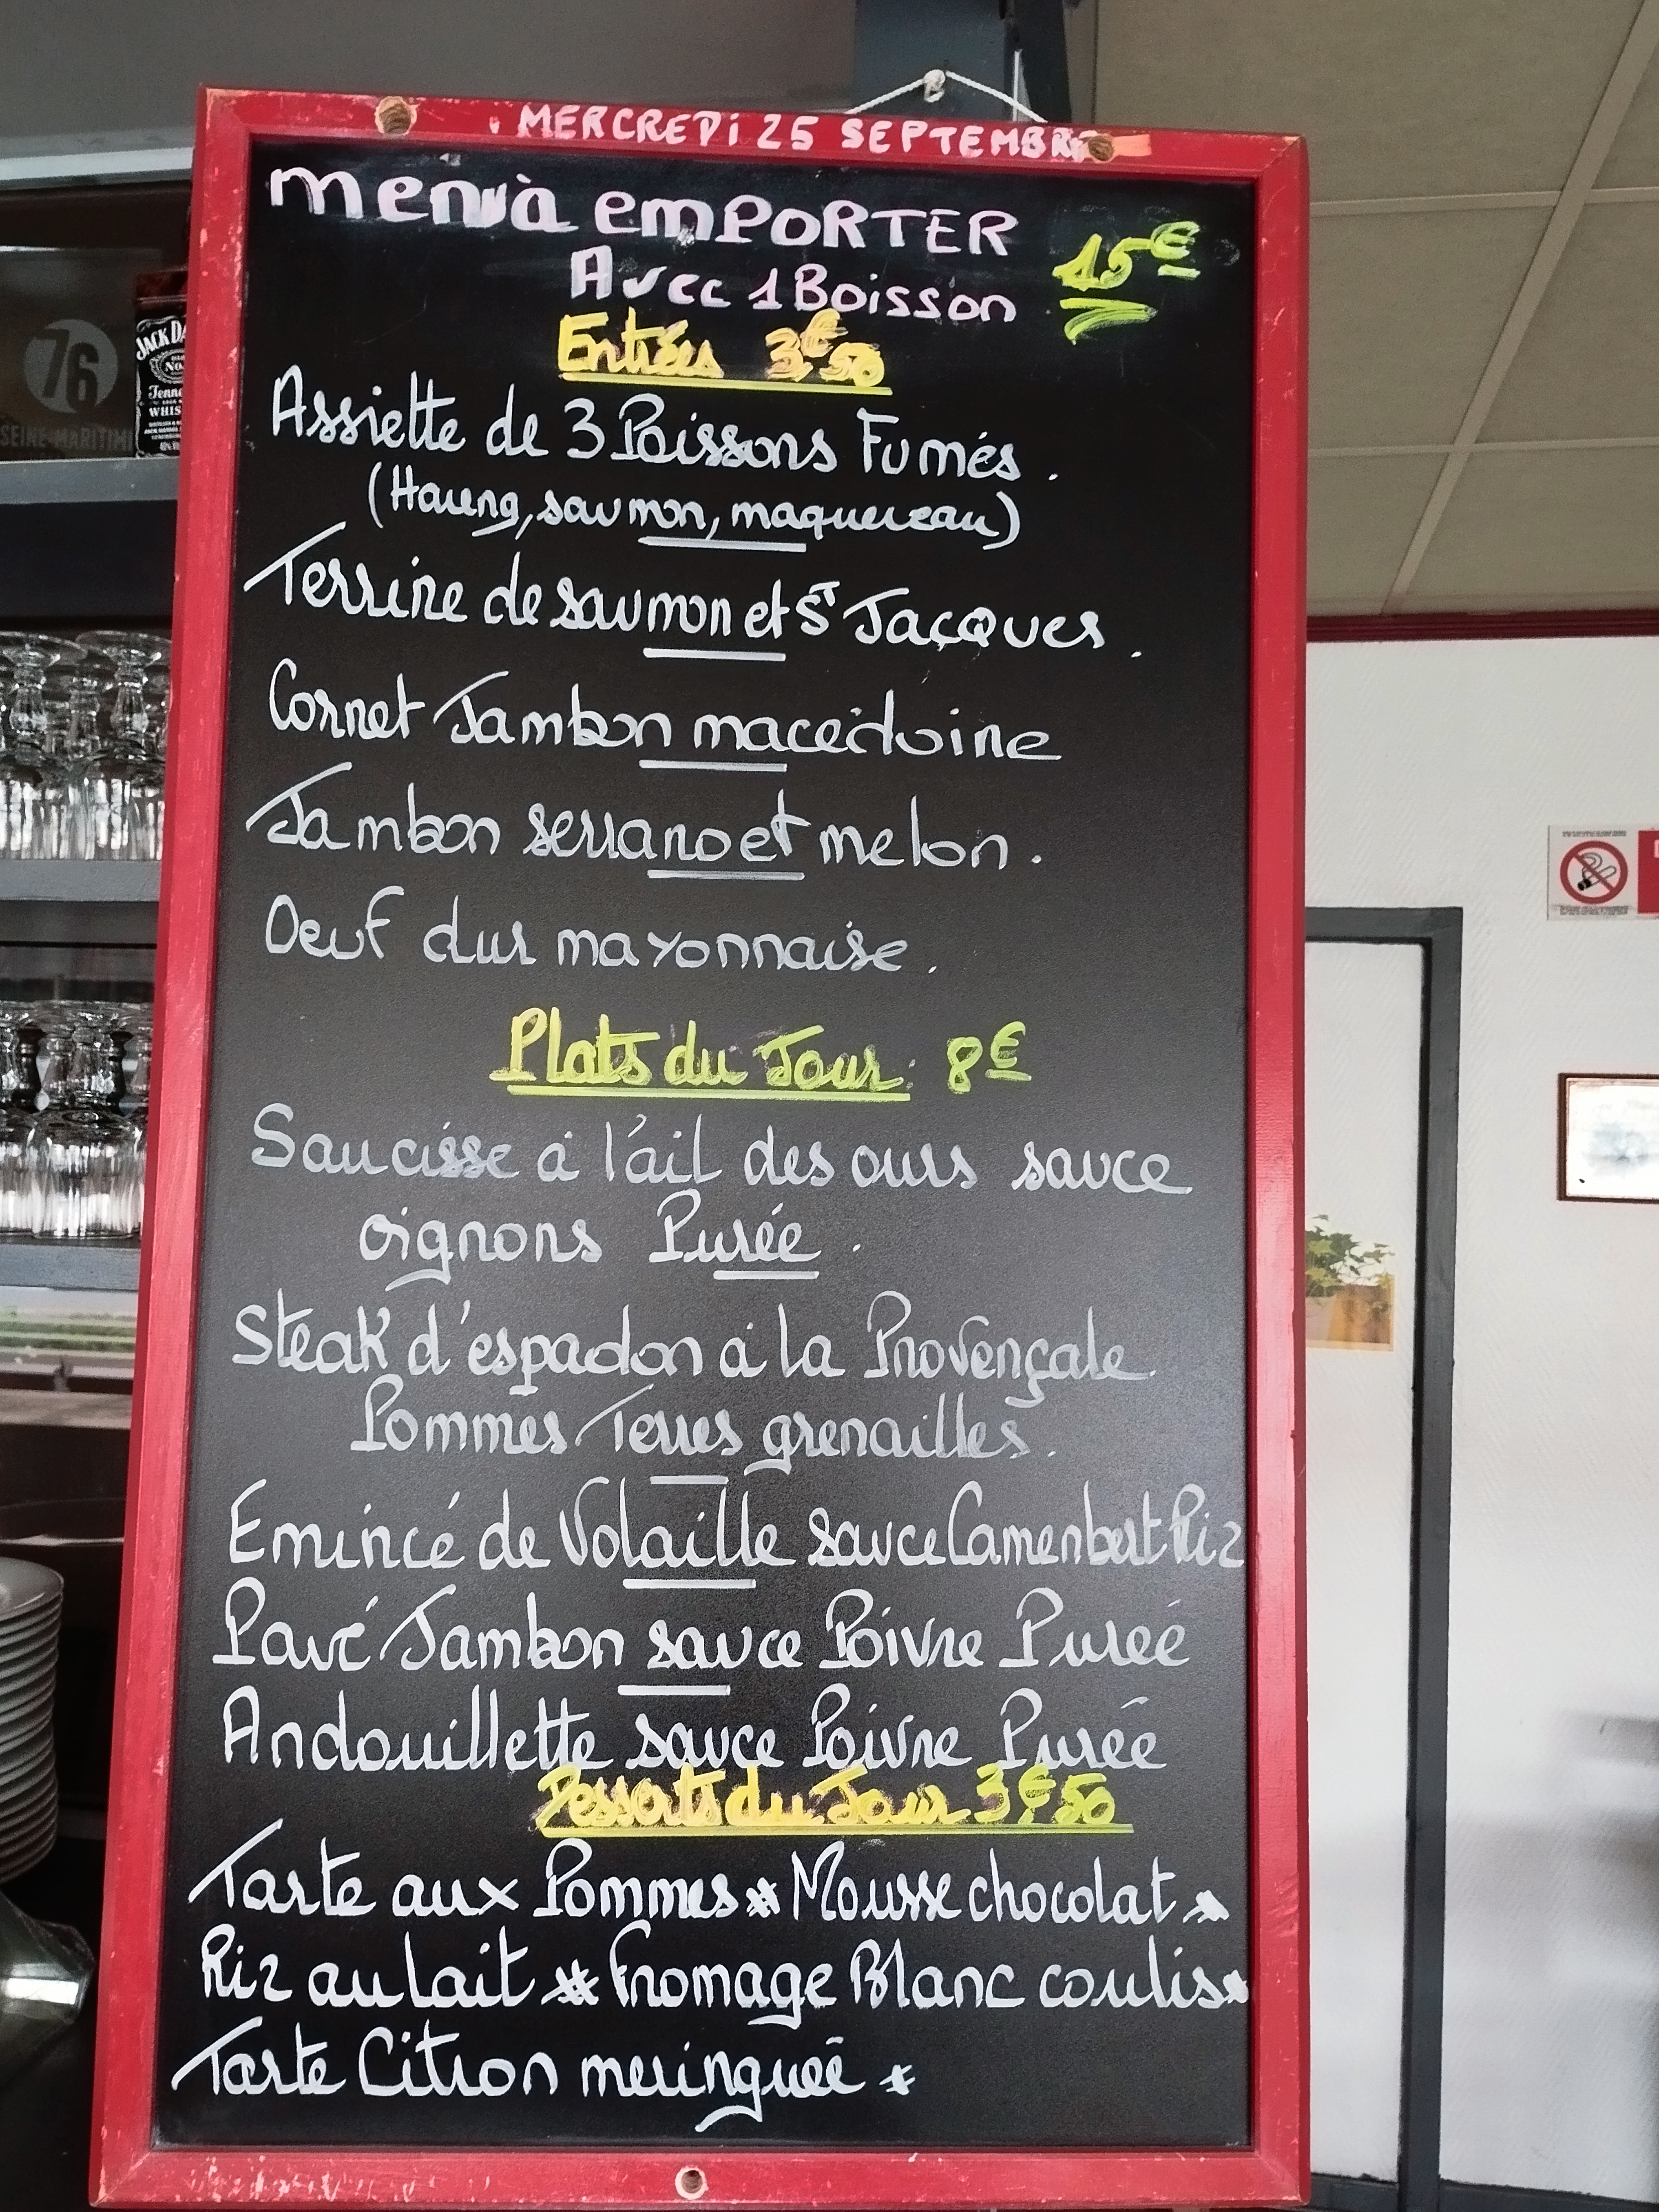 MERCREDI 25 SEPTEMBRE
menu à emPORTER
15€
Avec 1 Boisson
Entrées 3€50
Assiette de 3 Poissons Fumés.
(Hareng, saumon, maquereau)
Terrine de saumon et St Jacques.
Cornet Jambon macédoine
Jambon serrano et melon.
Oeuf dur mayonnaise.
Plats du Jour: 8€
Saucisse à l'ail des ours sauce
oignons Purée.
Steak d'espadon à la Provençale.
Pommes Terres grenailles.
Emincé de Volaille sauce Camenbert Riz
Pavé Jambon sauce Poivre Purée
Andouillette sauce Poivre Purée
Desserts du Jour 3€50
Tarte aux Pommes * Mousse chocolat *
Riz au lait * Fromage Blanc coulis *
Tarte Citron meringuée *
76
SEINE-MARITIM
JACK DA
No.
Tenne
WHIS
40%